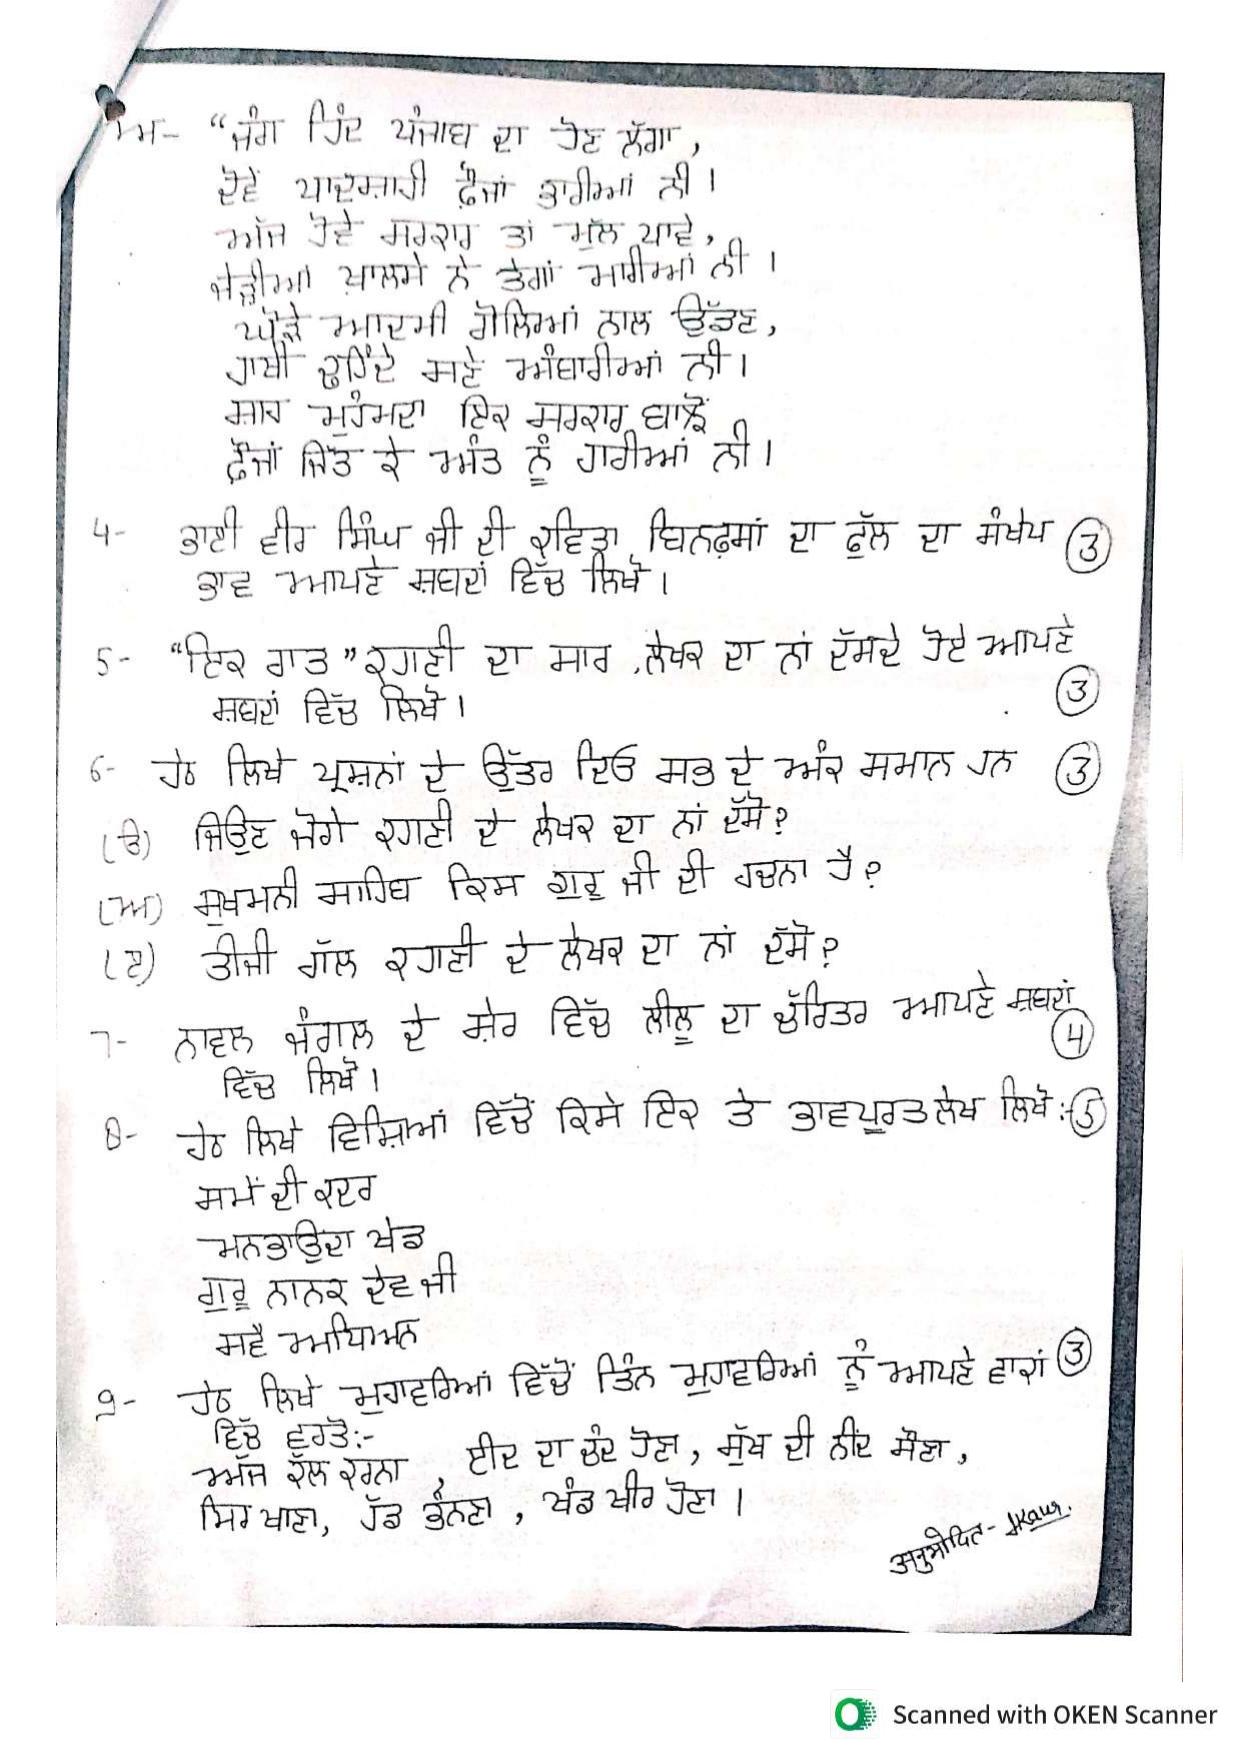 ਅ- “ਜੰਗ ਹਿੰਦ ਪੰਜਾਬ ਦਾ ਹੋਣ ਲੱਗਾ,
ਦੋਵੇਂ ਪਾਦਸ਼ਾਹੀ ਫ਼ੌਜਾਂ ਭਾਰੀਆਂ ਨੀ ।
ਅੱਜ ਹੋਵੇ ਸਰਕਾਰ ਤਾਂ ਮੁੱਲ ਪਾਵੇ,
ਜੇੜੀਆਂ ਖ਼ਾਲਸੇ ਨੇ ਤੇਗਾਂ ਮਾਰੀਆਂ ਨੀ ।
ਘੋੜੇ ਆਦਮੀ ਗੋਲਿਆਂ ਨਾਲ ਉੱਡਣ,
ਹਾਥੀ ਢਹਿੰਦੇ ਸਣੇ ਅੰਬਾਰੀਆਂ ਨੀ ।
ਸ਼ਾਹ ਮੁਹੰਮਦਾ ਇਕ ਸਰਕਾਰ ਬਾਝੋਂ
ਫ਼ੌਜਾਂ ਜਿੱਤ ਕੇ ਅੰਤ ਨੂੰ ਹਾਰੀਆਂ ਨੀ ।
4- ਭਾਈ ਵੀਰ ਸਿੰਘ ਜੀ ਦੀ ਕਵਿਤਾ, ਬਿਨਫ਼ਸ਼ਾਂ ਦਾ ਫੁੱਲ ਦਾ ਸੰਖੇਪ (3)
ਭਾਵ ਆਪਣੇ ਸ਼ਬਦਾਂ ਵਿੱਚ ਲਿਖੋ ।
5- “ਇਕ ਰਾਤ” ਕਹਾਣੀ ਦਾ ਸਾਰ, ਲੇਖਕ ਦਾ ਨਾਂ ਦੱਸਦੇ ਹੋਏ ਆਪਣੇ
ਸ਼ਬਦਾਂ ਵਿੱਚ ਲਿਖੋ । (3)
6- ਹੇਠ ਲਿਖੇ ਪ੍ਰਸ਼ਨਾਂ ਦੇ ਉੱਤਰ ਦਿਓ ਸਭ ਦੇ ਅੰਕ ਸਮਾਨ ਹਨ (3)
(ੳ) ਜਿਉਣ ਜੋਗੇ ਕਹਾਣੀ ਦੇ ਲੇਖਕ ਦਾ ਨਾਂ ਦੱਸੋ?
(ਅ) ਸੁਖਮਨੀ ਸਾਹਿਬ ਕਿਸ ਗੁਰੂ ਜੀ ਦੀ ਰਚਨਾ ਹੈ?
(ੲ) ਤੀਜੀ ਗੱਲ ਕਹਾਣੀ ਦੇ ਲੇਖਕ ਦਾ ਨਾਂ ਦੱਸੋ?
7- ਨਾਵਲ ਜੰਗਲ ਦੇ ਸ਼ੇਰ ਵਿੱਚ ਲੀਲੂ ਦਾ ਚੱਰਿਤਰ ਆਪਣੇ ਸ਼ਬਦਾਂ (4)
ਵਿੱਚ ਲਿਖੋ ।
8- ਹੇਠ ਲਿਖੇ ਵਿਸ਼ਿਆਂ ਵਿੱਚੋਂ ਕਿਸੇ ਇਕ ਤੇ ਭਾਵਪੂਰਤ ਲੇਖ ਲਿਖੋ :- (5)
ਸਮੇਂ ਦੀ ਕਦਰ
ਮਨਭਾਉਂਦਾ ਖੇਡ
ਗੁਰੂ ਨਾਨਕ ਦੇਵ ਜੀ
ਸਵੈ ਅਧਿਅਨ
9- ਹੇਠ ਲਿਖੇ ਮੁਹਾਵਰਿਆਂ ਵਿੱਚੋਂ ਤਿੰਨ ਮੁਹਾਵਰਿਆਂ ਨੂੰ ਆਪਣੇ ਵਾਕਾਂ (3)
ਵਿੱਚ ਵਰਤੋ:-
ਅੱਜ ਕੱਲ ਕਰਨਾ , ਈਦ ਦਾ ਚੰਦ ਹੋਣਾ , ਸੁੱਖ ਦੀ ਨੀਂਦ ਸੌਣਾ ,
ਸਿਰ ਖਾਣਾ, ਹੱਡ ਭੰਨਣਾ , ਖੰਡ ਖੀਰ ਹੋਣਾ ।
अनुमोदित - JKaur.
Scanned with OKEN Scanner